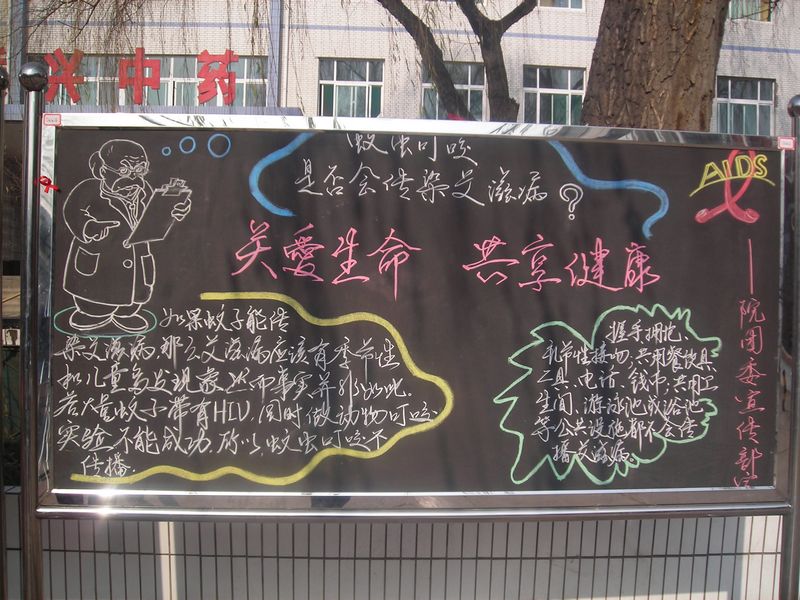 兴中药
蚊虫叮咬
是否会传染艾滋病?
AIDS
关爱生命 共享健康
如果蚊子能传
染艾滋病那么艾滋病应该有季节性
和儿童多发现象然而事实并非如此.
若大量蚊子带有HIV,同时做动物叮咬
实验不能成功.所以蚊虫叮咬不
传播.
握手拥抱、
礼节性接吻、共用餐饮具
工具、电话、钱币、共用卫
生间、游泳池或浴池
等公共设施都不会传
播艾滋病.
—院团委宣传部宣